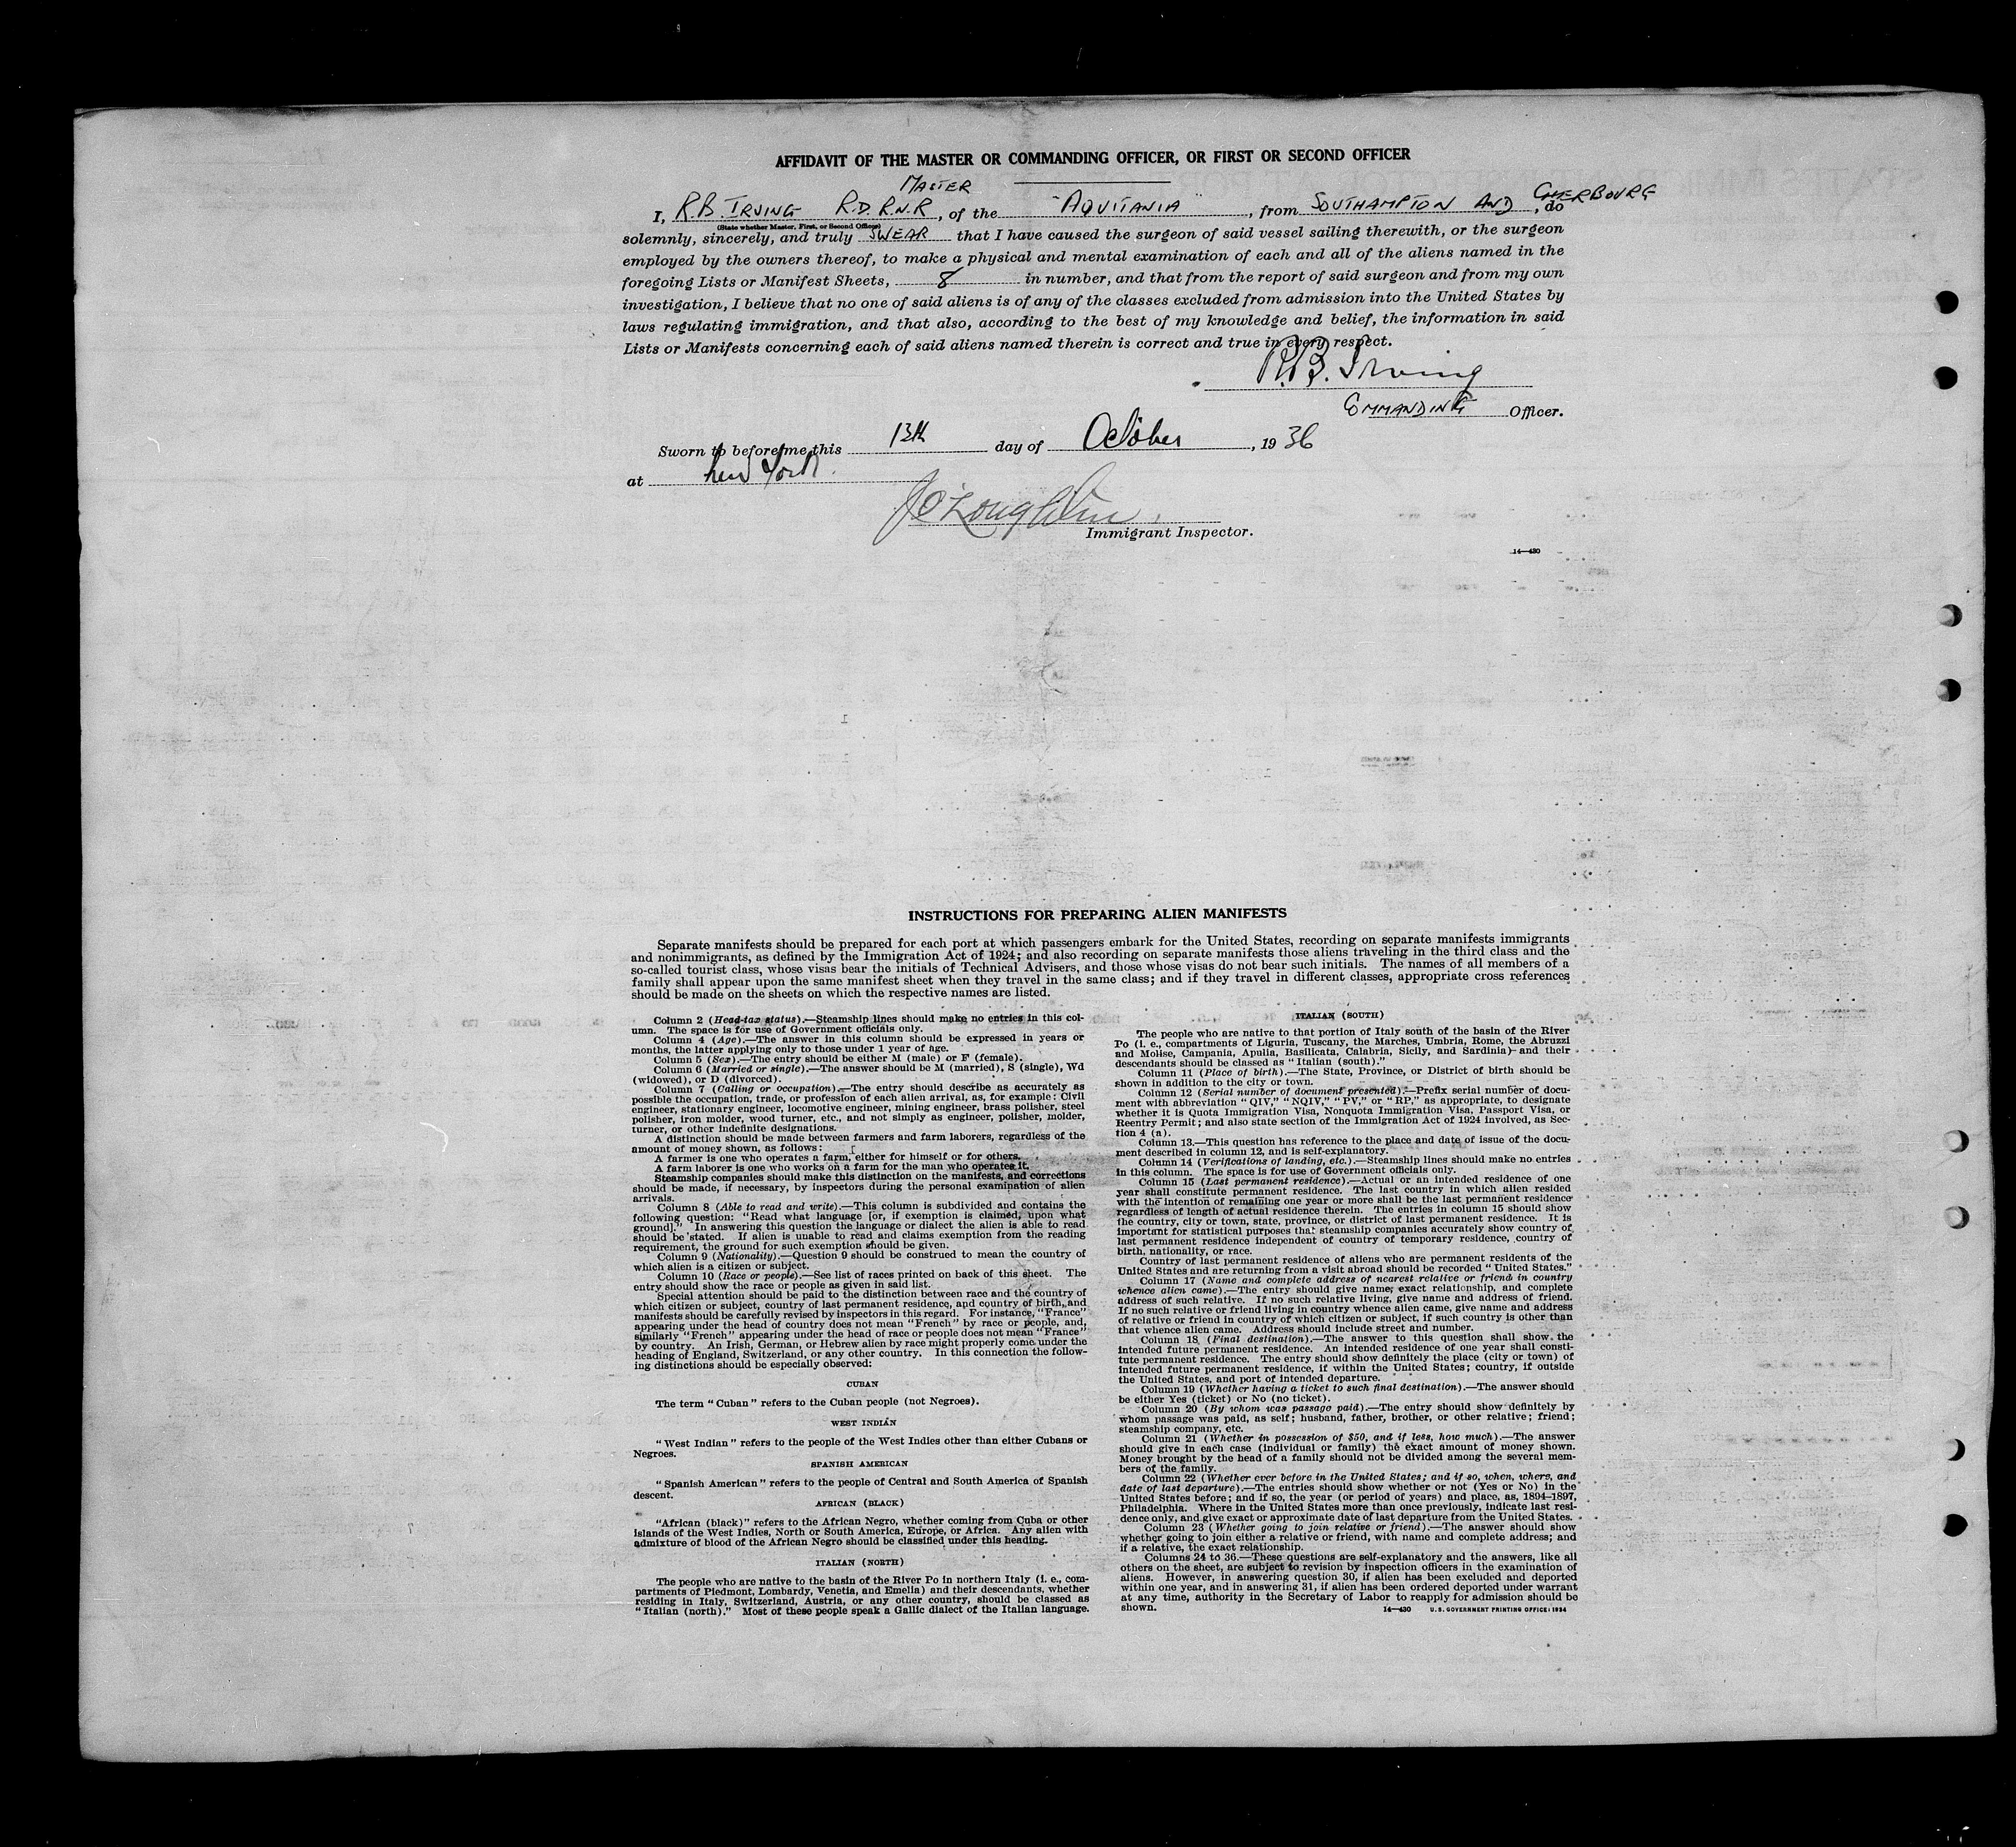 AFFIDAVIT OF THE MASTER OR COMMANDING OFFICER, OR FIRST OR SECOND OFFICER
MASTER
I, R.B. IRVING R.D. R.N.R, of the "AQUITANIA", from SOUTHAMPTON AND CHERBOURG, do
(State whether Master, First, or Second Officer)
solemnly, sincerely, and truly SWEAR that I have caused the surgeon of said vessel sailing therewith, or the surgeon
employed by the owners thereof, to make a physical and mental examination of each and all of the aliens named in the
foregoing Lists or Manifest Sheets, 8 in number, and that from the report of said surgeon and from my own
investigation, I believe that no one of said aliens is of any of the classes excluded from admission into the United States by
laws regulating immigration, and that also, according to the best of my knowledge and belief, the information in said
Lists or Manifests concerning each of said aliens named therein is correct and true in every respect.
R.B. Irving
COMMANDING Officer.
Sworn to before me this 13th day of October, 1936
at New York.
Immigrant Inspector.
14—430
INSTRUCTIONS FOR PREPARING ALIEN MANIFESTS
Separate manifests should be prepared for each port at which passengers embark for the United States, recording on separate manifests immigrants
and nonimmigrants, as defined by the Immigration Act of 1924; and also recording on separate manifests those aliens traveling in the third class and the
so-called tourist class, whose visas bear the initials of Technical Advisers, and those whose visas do not bear such initials. The names of all members of a
family shall appear upon the same manifest sheet when they travel in the same class; and if they travel in different classes, appropriate cross references
should be made on the sheets on which the respective names are listed.
Column 2 (Head-tax status).—Steamship lines should make no entries in this col-
umn. The space is for use of Government officials only.
Column 4 (Age).—The answer in this column should be expressed in years or
months, the latter applying only to those under 1 year of age.
Column 5 (Sex).—The entry should be either M (male) or F (female).
Column 6 (Married or single).—The answer should be M (married), S (single), Wd
(widowed), or D (divorced).
Column 7 (Calling or occupation).—The entry should describe as accurately as
possible the occupation, trade, or profession of each alien arrival, as, for example: Civil
engineer, stationary engineer, locomotive engineer, mining engineer, brass polisher, steel
polisher, iron molder, wood turner, etc., and not simply as engineer, polisher, molder,
turner, or other indefinite designations.
A distinction should be made between farmers and farm laborers, regardless of the
amount of money shown, as follows:
A farmer is one who operates a farm, either for himself or for others.
A farm laborer is one who works on a farm for the man who operates it.
Steamship companies should make this distinction on the manifests, and corrections
should be made, if necessary, by inspectors during the personal examination of alien
arrivals.
Column 8 (Able to read and write).—This column is subdivided and contains the
following question: "Read what language [or, if exemption is claimed, upon what
ground]." In answering this question the language or dialect the alien is able to read
should be stated. If alien is unable to read and claims exemption from the reading
requirement, the ground for such exemption should be given.
Column 9 (Nationality).—Question 9 should be construed to mean the country of
which alien is a citizen or subject.
Column 10 (Race or people).—See list of races printed on back of this sheet. The
entry should show the race or people as given in said list.
Special attention should be paid to the distinction between race and the country of
which citizen or subject, country of last permanent residence, and country of birth, and
manifests should be carefully revised by inspectors in this regard. For instance, "France"
appearing under the head of country does not mean "French" by race or people, and,
similarly "French" appearing under the head of race or people does not mean "France"
by country. An Irish, German, or Hebrew alien by race might properly come under the
heading of England, Switzerland, or any other country. In this connection the follow-
ing distinctions should be especially observed:
CUBAN
The term "Cuban" refers to the Cuban people (not Negroes).
WEST INDIAN
"West Indian" refers to the people of the West Indies other than either Cubans or
Negroes.
SPANISH AMERICAN
"Spanish American" refers to the people of Central and South America of Spanish
descent.
AFRICAN (BLACK)
"African (black)" refers to the African Negro, whether coming from Cuba or other
islands of the West Indies, North or South America, Europe, or Africa. Any alien with
admixture of blood of the African Negro should be classified under this heading.
ITALIAN (NORTH)
The people who are native to the basin of the River Po in northern Italy (i. e., com-
partments of Piedmont, Lombardy, Venetia, and Emelia) and their descendants, whether
residing in Italy, Switzerland, Austria, or any other country, should be classed as
"Italian (north)." Most of these people speak a Gallic dialect of the Italian language.
ITALIAN (SOUTH)
The people who are native to that portion of Italy south of the basin of the River
Po (i. e., compartments of Liguria, Tuscany, the Marches, Umbria, Rome, the Abruzzi
and Molise, Campania, Apulia, Basilicata, Calabria, Sicily, and Sardinia) and their
descendants should be classed as "Italian (south)."
Column 11 (Place of birth).—The State, Province, or District of birth should be
shown in addition to the city or town.
Column 12 (Serial number of document presented).—Prefix serial number of docu-
ment with abbreviation "QIV," "NQIV," "PV," or "RP," as appropriate, to designate
whether it is Quota Immigration Visa, Nonquota Immigration Visa, Passport Visa, or
Reentry Permit; and also state section of the Immigration Act of 1924 involved, as Sec-
tion 4 (a).
Column 13.—This question has reference to the place and date of issue of the docu-
ment described in column 12, and is self-explanatory.
Column 14 (Verifications of landing, etc.).—Steamship lines should make no entries
in this column. The space is for use of Government officials only.
Column 15 (Last permanent residence).—Actual or an intended residence of one
year shall constitute permanent residence. The last country in which alien resided
with the intention of remaining one year or more shall be the last permanent residence
regardless of length of actual residence therein. The entries in column 15 should show
the country, city or town, state, province, or district of last permanent residence. It is
important for statistical purposes that steamship companies accurately show country of
last permanent residence independent of country of temporary residence, country of
birth, nationality, or race.
Country of last permanent residence of aliens who are permanent residents of the
United States and are returning from a visit abroad should be recorded "United States."
Column 17 (Name and complete address of nearest relative or friend in country
whence alien came).—The entry should give name, exact relationship, and complete
address of such relative. If no such relative living, give name and address of friend.
If no such relative or friend living in country whence alien came, give name and address
of relative or friend in country of which citizen or subject, if such country is other than
that whence alien came. Address should include street and number.
Column 18 (Final destination).—The answer to this question shall show the
intended future permanent residence. An intended residence of one year shall consti-
tute permanent residence. The entry should show definitely the place (city or town) of
intended future permanent residence, if within the United States; country, if outside
the United States, and port of intended departure.
Column 19 (Whether having a ticket to such final destination).—The answer should
be either Yes (ticket) or No (no ticket).
Column 20 (By whom was passage paid).—The entry should show definitely by
whom passage was paid, as self; husband, father, brother, or other relative; friend;
steamship company, etc.
Column 21 (Whether in possession of $50, and if less, how much).—The answer
should give in each case (individual or family) the exact amount of money shown.
Money brought by the head of a family should not be divided among the several mem-
bers of the family.
Column 22 (Whether ever before in the United States; and if so, when, where, and
date of last departure).—The entries should show whether or not (Yes or No) in the
United States before; and if so, the year (or period of years) and place, as, 1894–1897,
Philadelphia. Where in the United States more than once previously, indicate last resi-
dence only, and give exact or approximate date of last departure from the United States.
Column 23 (Whether going to join relative or friend).—The answer should show
whether going to join either a relative or friend, with name and complete address; and
if a relative, the exact relationship.
Columns 24 to 36.—These questions are self-explanatory and the answers, like all
others on the sheet, are subject to revision by inspection officers in the examination of
aliens. However, in answering question 30, if alien has been excluded and deported
within one year, and in answering 31, if alien has been ordered deported under warrant
at any time, authority in the Secretary of Labor to reapply for admission should be
shown.
14—430 U. S. GOVERNMENT PRINTING OFFICE: 1934